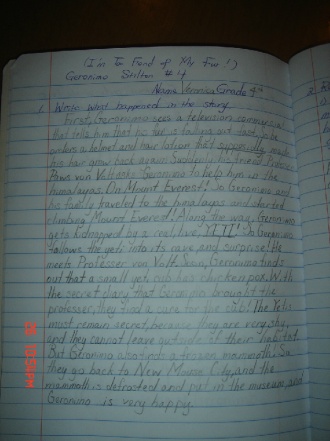 (I'm Too Fond of My Fur!)
Geronimo Stilton #4
Name: Veronica Grade 4th
1. Write what happened in the story.
First, Geronimo sees a television commercial
that tells him that his fur is falling out fast, so he
orders a helmet and hair lotion that supposedly made
his fair grow back again. Suddenly his friend, Professor
Paws von Volt asks Geronimo to help him in the
himalayas. On Mount Everest! So Geronimo and
his family traveled to the himalayas and started
climbing Mount Everest! Along the way, Geronimo
gets kidnapped by a real, live, YETI! So Geronimo
follows the yeti into its cave, and surprise! He
meets Professer von Volt. Soon, Geronimo finds
out that a small yeti cub has chicken pox. With
the secret diary that Geronimo brought the
professer, they find a cure for the cub! The Yetis
must remain secret, because they are very shy,
and they cannot leave outside of their habitat.
But Geronimo also finds a frozen mammoth. So
they go back to New Mouse City, and the
mammoth is defrosted and put in the museum, and
Geronimo is very happy.